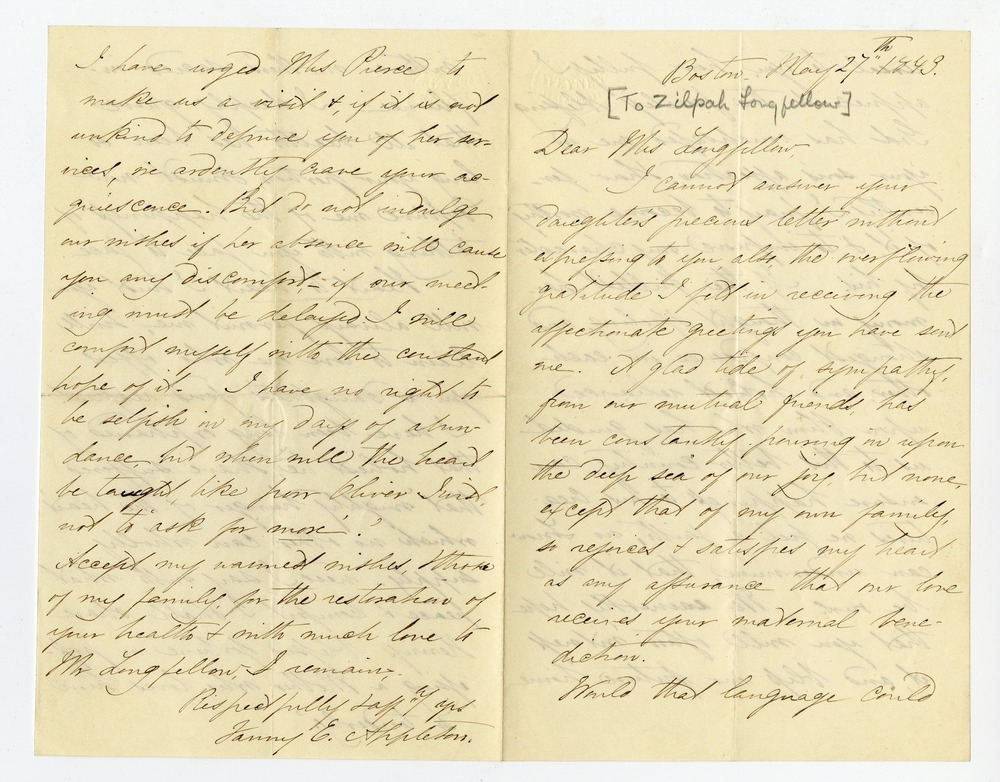 Boston - May 27th 1843.
[To Zilpah Longfellow]
Dear Mrs Longfellow,
I cannot answer your
daughter's precious letter without
expressing to you also, the overflowing
gratitude I felt in receiving the
affectionate greetings you have sent
me. A glad tide of sympathy,
from our mutual friends, has
been constantly pouring in upon
the deep sea of our joy, but none,
except that of my own family,
so rejoices & satisfies my heart
as any assurance that our love
receives your maternal bene-
diction.
Would that language could
I have urged Mrs Pierce to
make us a visit & if it is not
unkind to deprive you of her ser-
vices, we ardently crave your ac-
quiescence. But do not indulge
our wishes if her absence will cause
you any discomfort - if our meet-
ing must be delayed I will
comfort myself with the constant
hope of it - I have no right to
be selfish in my days of abun-
dance, but when will the heart
be taught, like poor Oliver Twist,
not to 'ask for more'?
Accept my warmest wishes, & those
of my family, for the restoration of
your health & with much love to
Mr Longfellow, I remain,
Respectfully & affly yrs
Fanny E. Appleton.